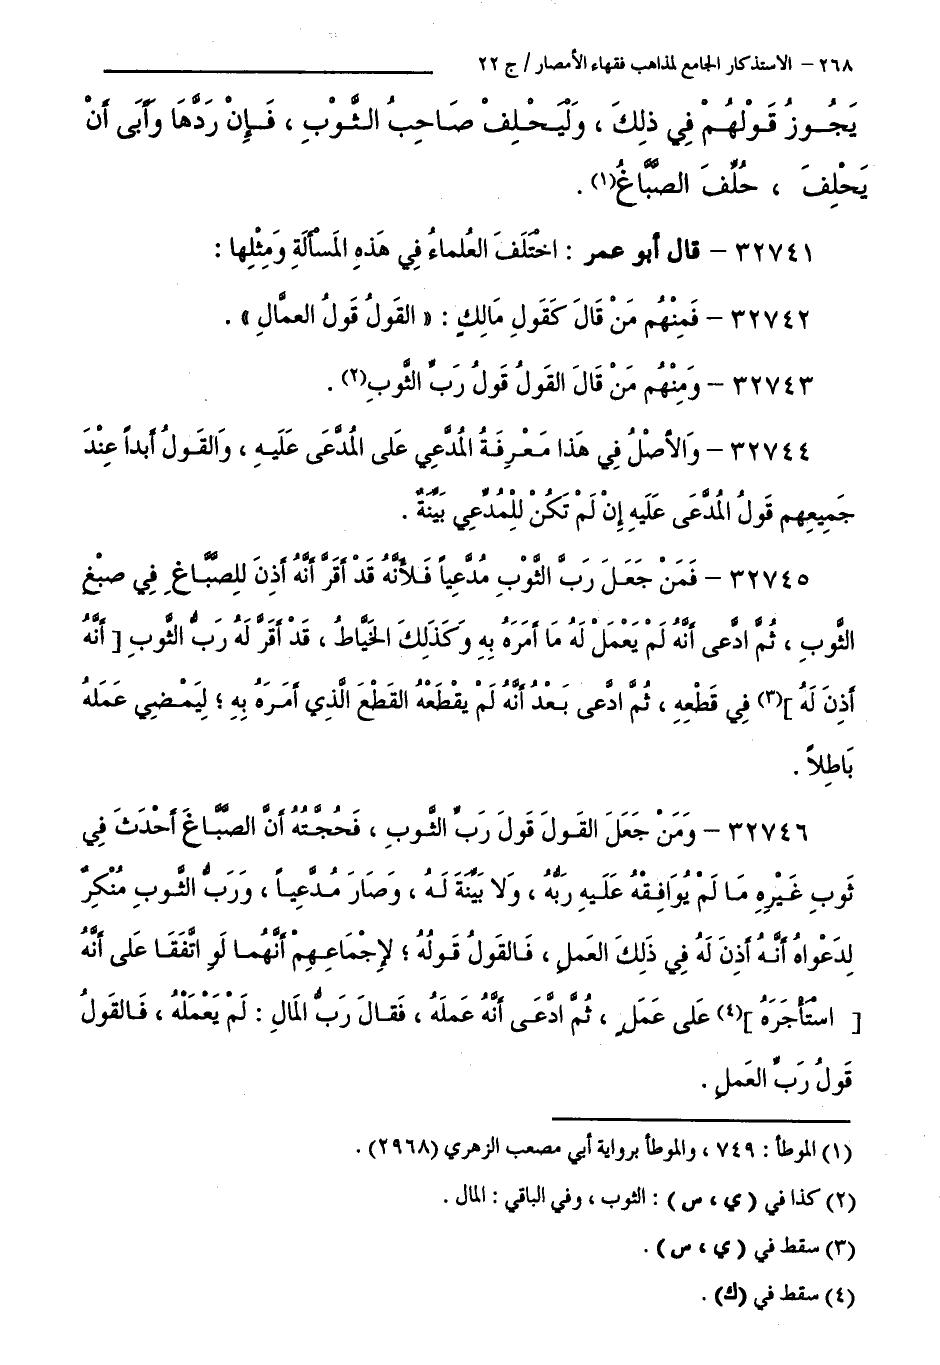 ٢٦٨ – الاستذكار الجامع لمذاهب فقهاء الأمصار / ج ٢٢
يَجُوزُ قَوْلُهُمْ فِي ذلِكَ ، وَلْيَحْلِفْ صَاحِبُ الثَّوْبِ ، فَإِنْ رَدَّهَا وَأَبَى أَنْ
يَحْلِفَ ، حُلِّفَ الصَّبَّاغُ(١) .
٣٢٧٤١ – قال أبو عمر : اخْتَلَفَ العُلماءُ فِي هَذِهِ المَسْأَلَةِ وَمِثْلِها :
٣٢٧٤٢ – فَمِنْهُم مَنْ قَالَ كَقَولِ مَالِكٍ : « القَولُ قَولُ العمَّالِ » .
٣٢٧٤٣ – وَمِنْهُم مَنْ قَالَ القَولُ قَولُ رَبِّ الثَّوبِ(٢) .
٣٢٧٤٤ – وَالأَصْلُ فِي هَذا مَعْرِفَةُ المُدَّعِي عَلى المُدَّعَى عَلَيهِ ، وَالقَولُ أبداً عِنْدَ
جَمِيعِهم قَولُ المُدَّعَى عَلَيهِ إِنْ لَمْ تَكُنْ لِلْمُدَّعِي بَيِّنَةٌ .
٣٢٧٤٥ – فَمَنْ جَعَلَ رَبَّ الثَّوْبِ مُدَّعِياً فَلأَنَّهُ قَدْ أَقَرَّ أَنَّهُ أَذِنَ لِلصَّبَّاغِ فِي صبْغِ
الثَّوبِ ، ثُمَّ ادَّعى أَنَّهُ لَمْ يَعْمَلْ لَهُ مَا أَمَرَهُ بِهِ وَكَذَلِكَ الخَيَّاطُ ، قَدْ أَقَرَّ لَهُ رَبُّ الثَّوبِ [ أَنَّهُ
أَذِنَ لَهُ ](٣) فِي قَطْعِهِ ، ثُمَّ ادَّعى بَعْدُ أَنَّهُ لَمْ يقْطَعْهُ القَطْعَ الَّذِي أَمَرَهُ بِهِ ؛ لِيَمْضِي عَمَلهُ
بَاطِلاً .
٣٢٧٤٦ – وَمَنْ جَعَلَ القَولَ قَولَ رَبِّ الثَّوبِ ، فَحُجَّتُهُ أَنَّ الصَّبَّاغَ أَحْدَثَ فِي
ثَوبِ غَيْرِهِ مَا لَمْ يُوَافِقْهُ عَلَيهِ رَبُّهُ ، وَلا بَيِّنَةَ لَهُ ، وَصَارَ مُدَّعِياً ، وَرَبُّ الثَّوبِ مُنْكِرٌ
لِدَعْوَاهُ أَنَّهُ أَذِنَ لَهُ فِي ذَلِكَ العَملِ ، فَالقَولُ قَولُهُ ؛ لإِجْمَاعِهِمْ أَنَّهُما لَو اتَّفَقَا عَلى أَنَّهُ
[ اسْتَأْجَرَهُ ](٤) عَلى عَمَلٍ ، ثُمَّ ادَّعَى أَنَّهُ عَملَهُ ، فَقَالَ رَبُّ المَالِ : لَمْ يَعْمَلْهُ ، فَالقَولُ
قَولُ رَبِّ العَملِ .
(١) الموطأ : ٧٤٩ ، والموطأ برواية أبي مصعب الزهري (٢٩٦٨) .
(٢) كذا في ( ي ، س ) : الثوب ، وفي الباقي : المال .
(٣) سقط في ( ي ، س ) .
(٤) سقط في (ك) .